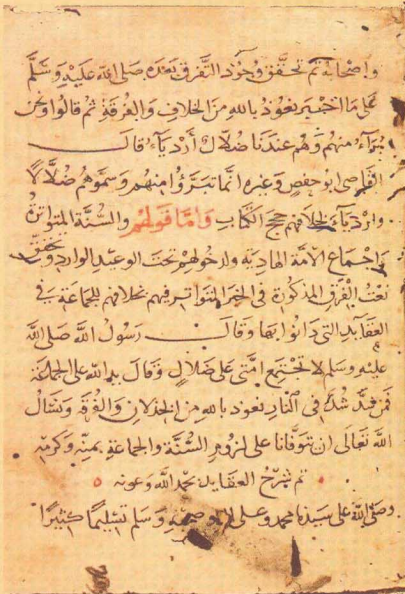 واصحابه ثم تحقق وجود التفرق بعده صلى الله عليه وسلم
على ما اخبر نعوذ بالله من الخلاف والفرقة ثم قالوا ونحن
برءآء منهم وهم عندنا ضلال أردياء قال
القاضي ابو حفص وغيره انما تبرؤا منهم وسموهم ضلالا
واردياء لخلافهم حجج الكتاب واما قولهم والسنة المتواترة
واجماع الامة الهادية ولدخولهم تحت الوعيد الوارد وتحقق
نعت الفرق المذكورة في الخبر المتواتر فيهم بخلافهم للجماعة في
العقايد التي دانوا بها وقال رسول الله صلى الله
عليه وسلم لا تجتمع امتى على ضلال وقال يد الله على الجماعة
فمن شذ شذ في النار نعوذ بالله من الخذلان والفرقه ونسال
الله تعالى ان يتوفانا على لزوم السنة والجماعة بمنه وكرمه
تم شرح العقايد بحمد الله وعونه
وصلى الله على سيدنا محمد وعلى اله وصحبه وسلم تسليما كثيرا